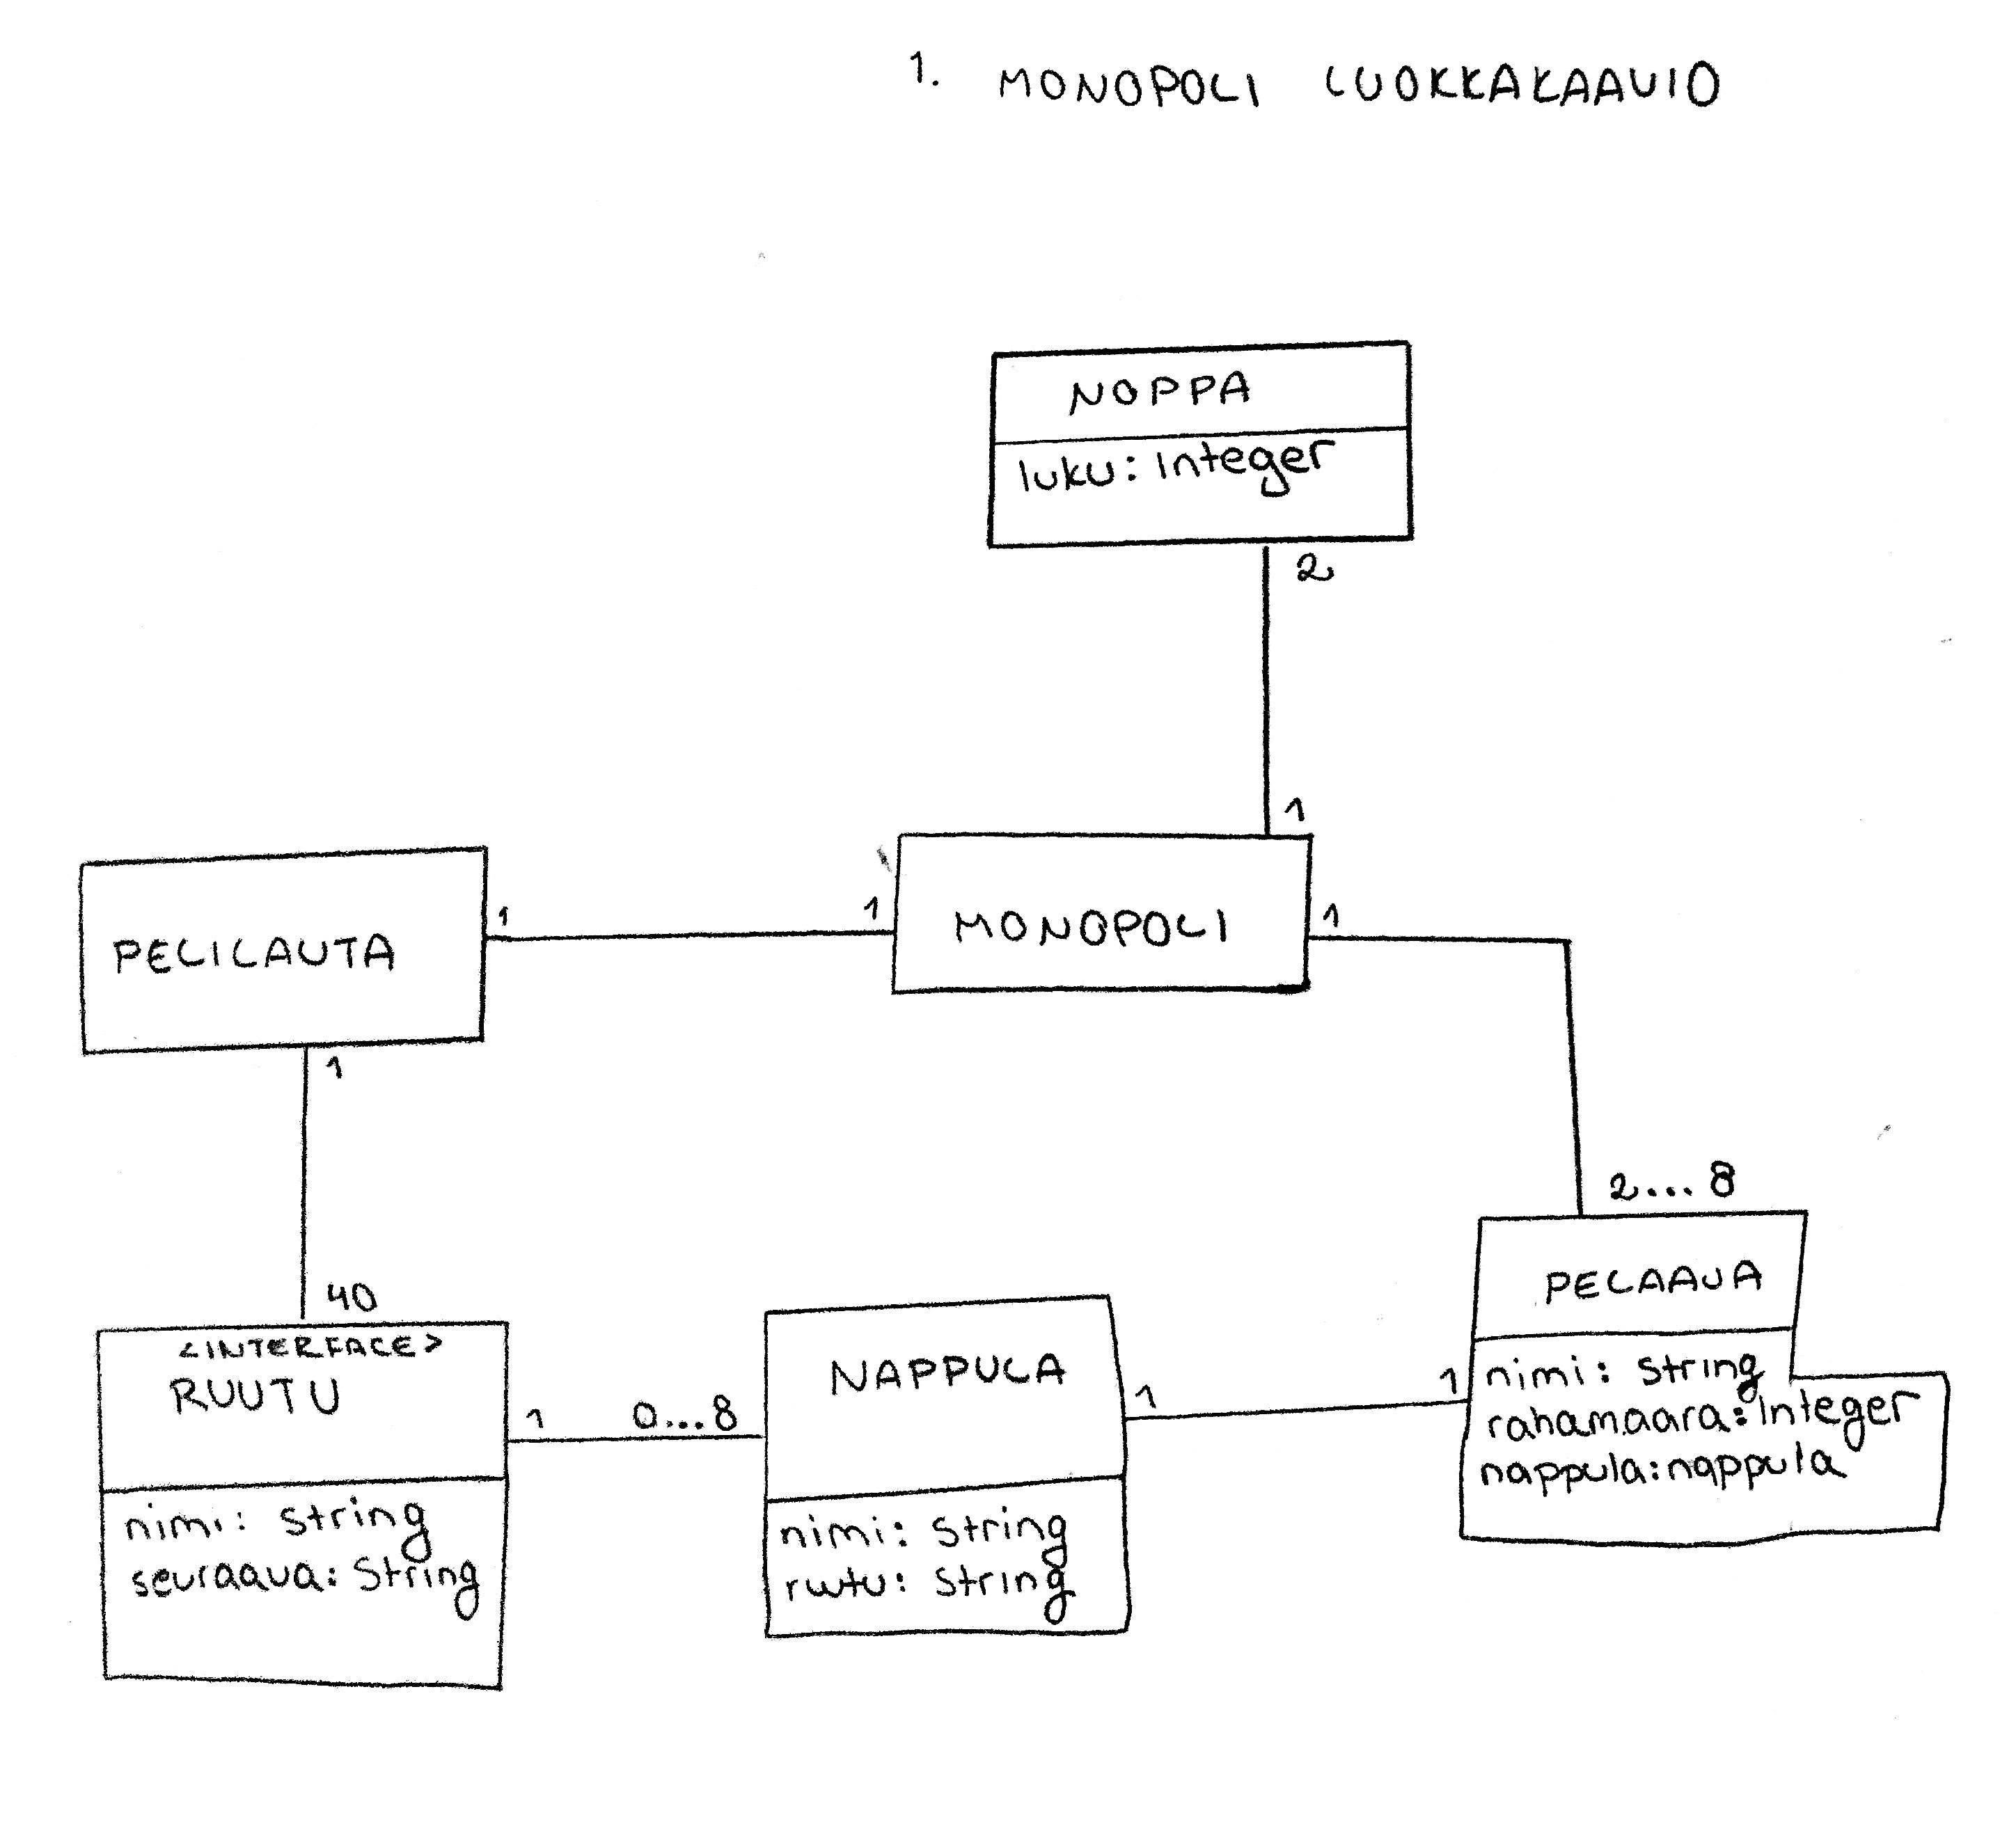 1. MONOPOLI LUOKKAKAAVIO
NOPPA
luku: Integer
2
1
PELILAUTA
1
1
MONOPOLI
1
1
2...8
40
<INTERFACE>
RUUTU
nimi: String
seuraava: String
1
0...8
NAPPULA
nimi: String
ruutu: String
1
1
PELAAJA
nimi: String
rahamaara: Integer
nappula: nappula